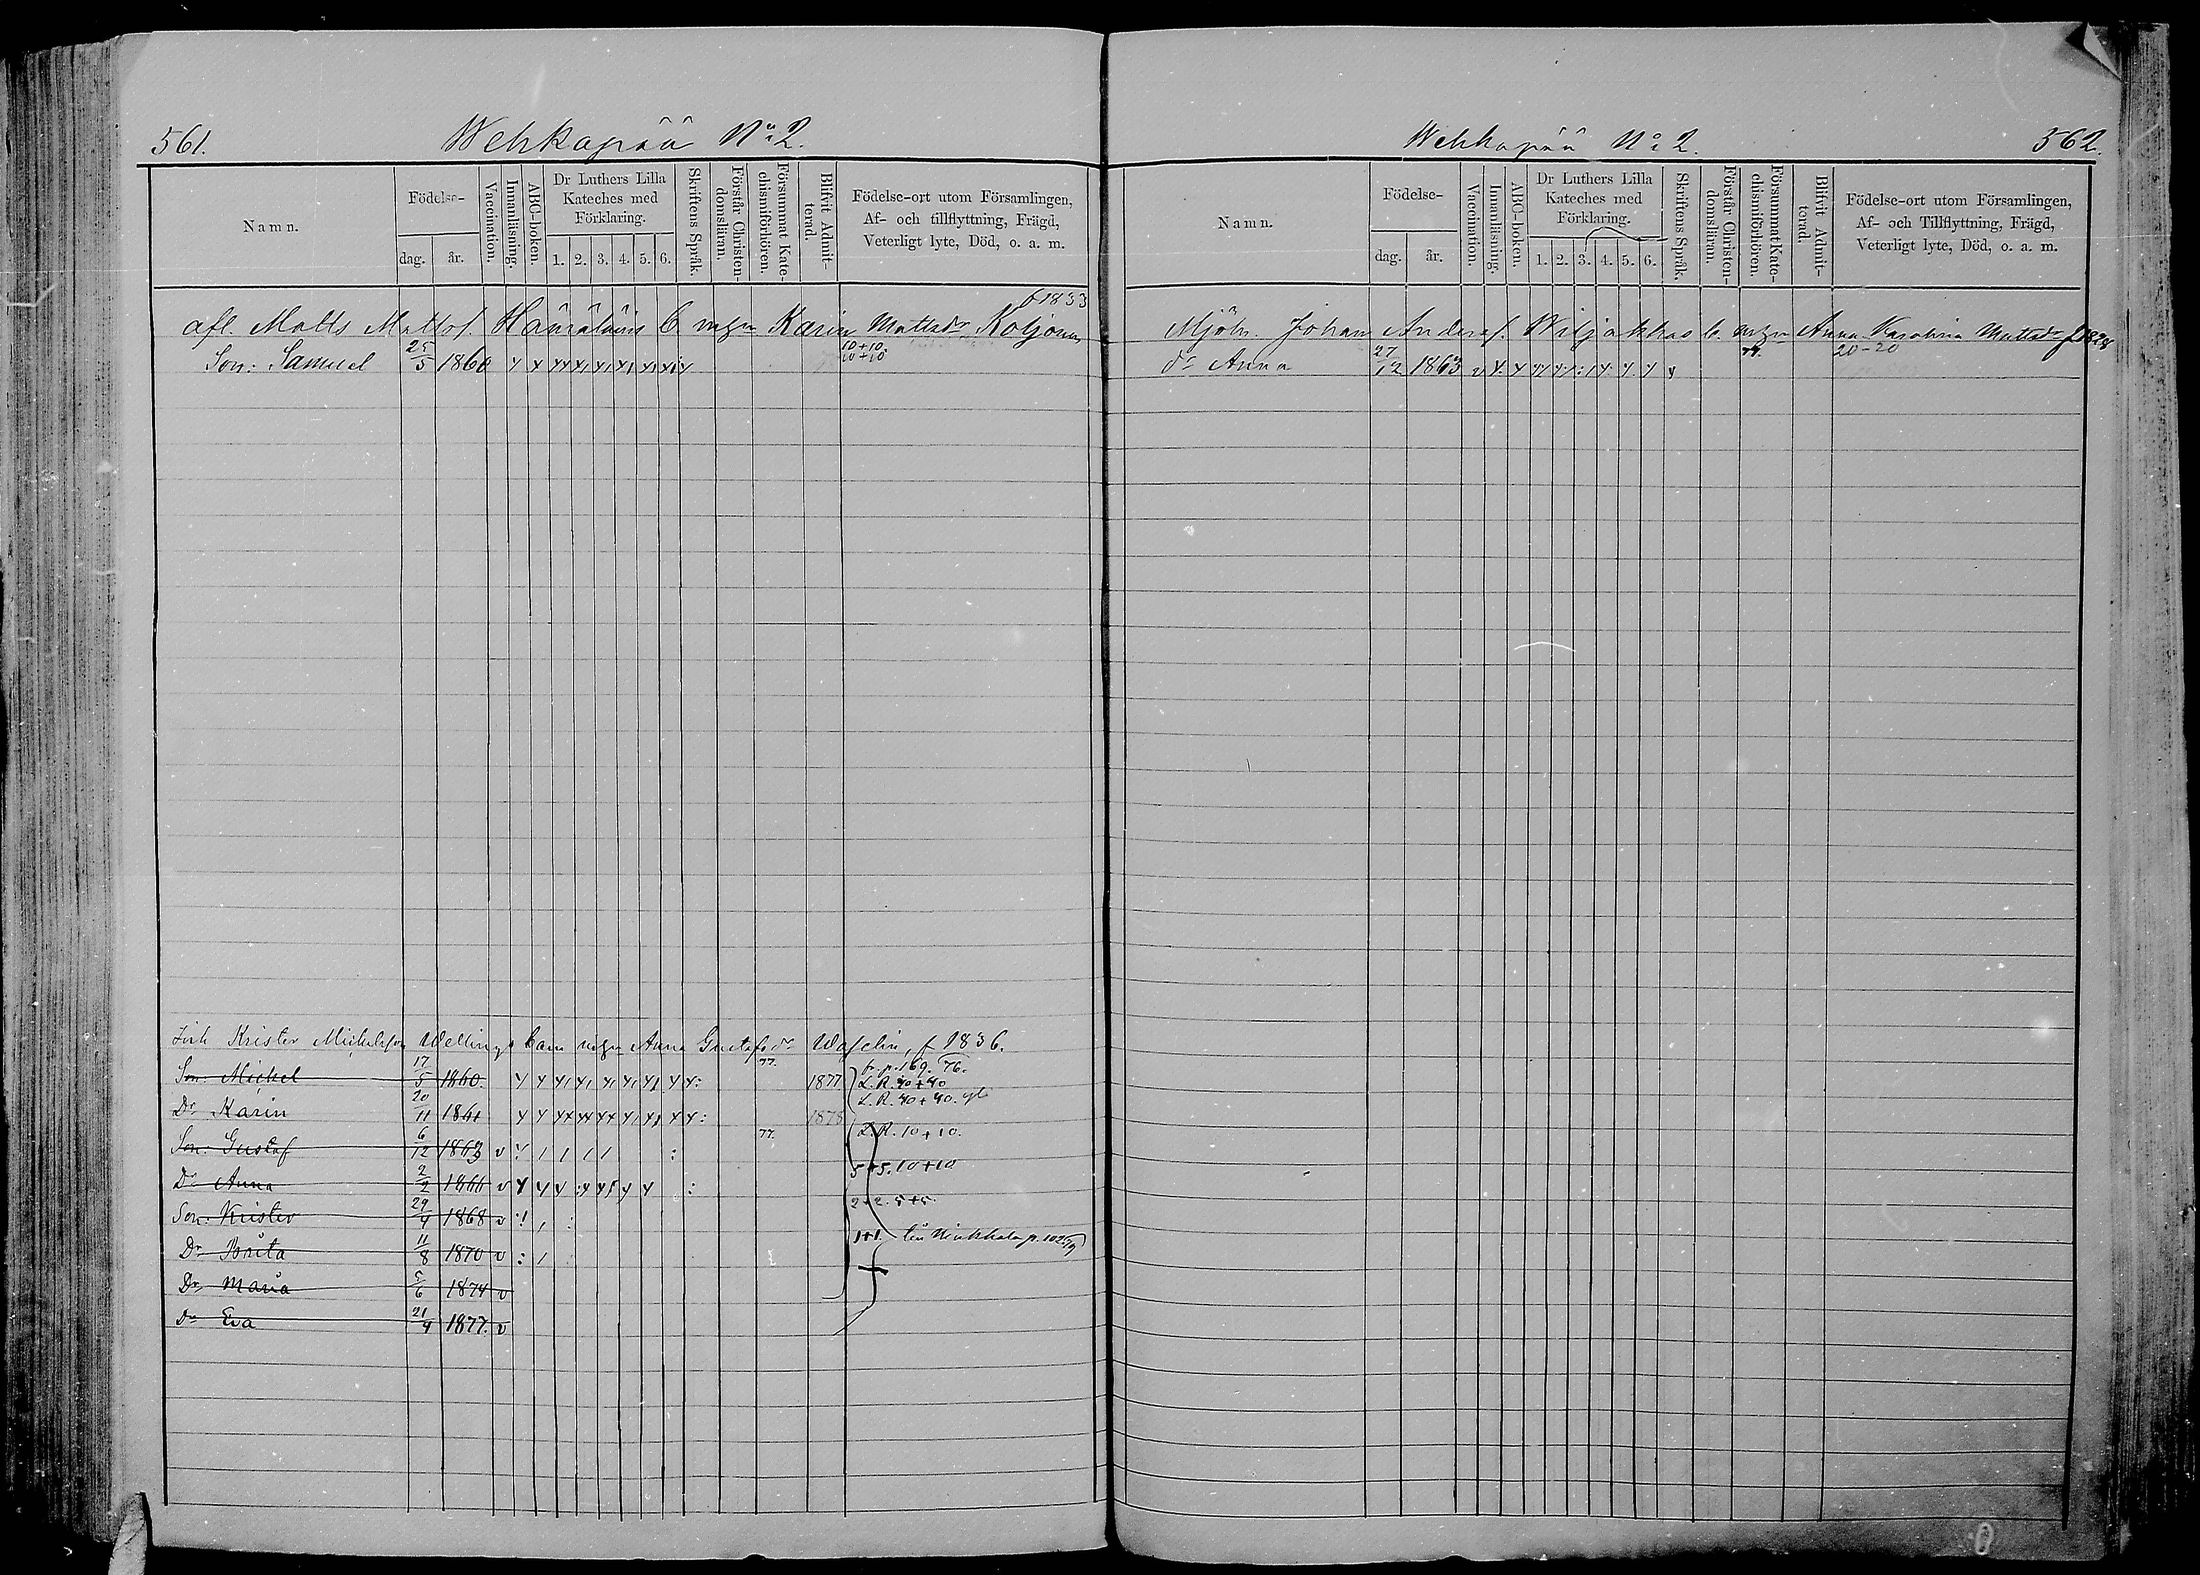 561. Wehkapää No 2.
Namn. Födelse- dag. år. Vaccination. Innanläsning. ABC-boken. Dr Luthers Lilla Kateches med Förklaring. 1. 2. 3. 4. 5. 6. Skriftens Språk. Förstår Christendomsläran. Försummat Katechismiförhören. Blifvit Admitterad. Födelse-ort utom Församlingen, Af- och tillflyttning, Frägd, Veterligt lyte, Död, o. a. m.
f 1833
afl. Matts Mattsf. C. Karin Mattsdr Koljonen
Son: Samuel 25/5 1860 10+10. 10+10
Inh Krister Michelsson Wellings barn Anna Gustafsdr f 1836.
77. fr. p. 169. 76.
Son: Michel 17/5 1860. 1877 L.R. 40+40
Dr Karin 20/11 1861 1878 L.R. 40+40.
Son: Gustaf 6/12 1863 v 77. L.R. 10+10.
Dr Anna 2/2 1866 v 5+5. 10+10
Son: Krister 29/4 1868 v 2+2. 5+5.
Dr Brita 11/8 1870 v 1+1. p. 102
Dr Maria 5/6 1874 v
Dr Eva 21/4 1877. v
562. Wehkapää No 2.
Namn. Födelse- dag. år. Vaccination. Innanläsning. ABC-boken. Dr Luthers Lilla Kateches med Förklaring. 1. 2. 3. 4. 5. 6. Skriftens Språk. Förstår Christendomsläran. Försummat Katechismiförhören. Blifvit Admitterad. Födelse-ort utom Församlingen, Af- och Tillflyttning, Frägd, Veterligt lyte, Död, o. a. m.
Mjöln. Johan Andersf. b. Anna Karolina Mattsdr f 1828
dr Anna 27/12 1863 v 20-20